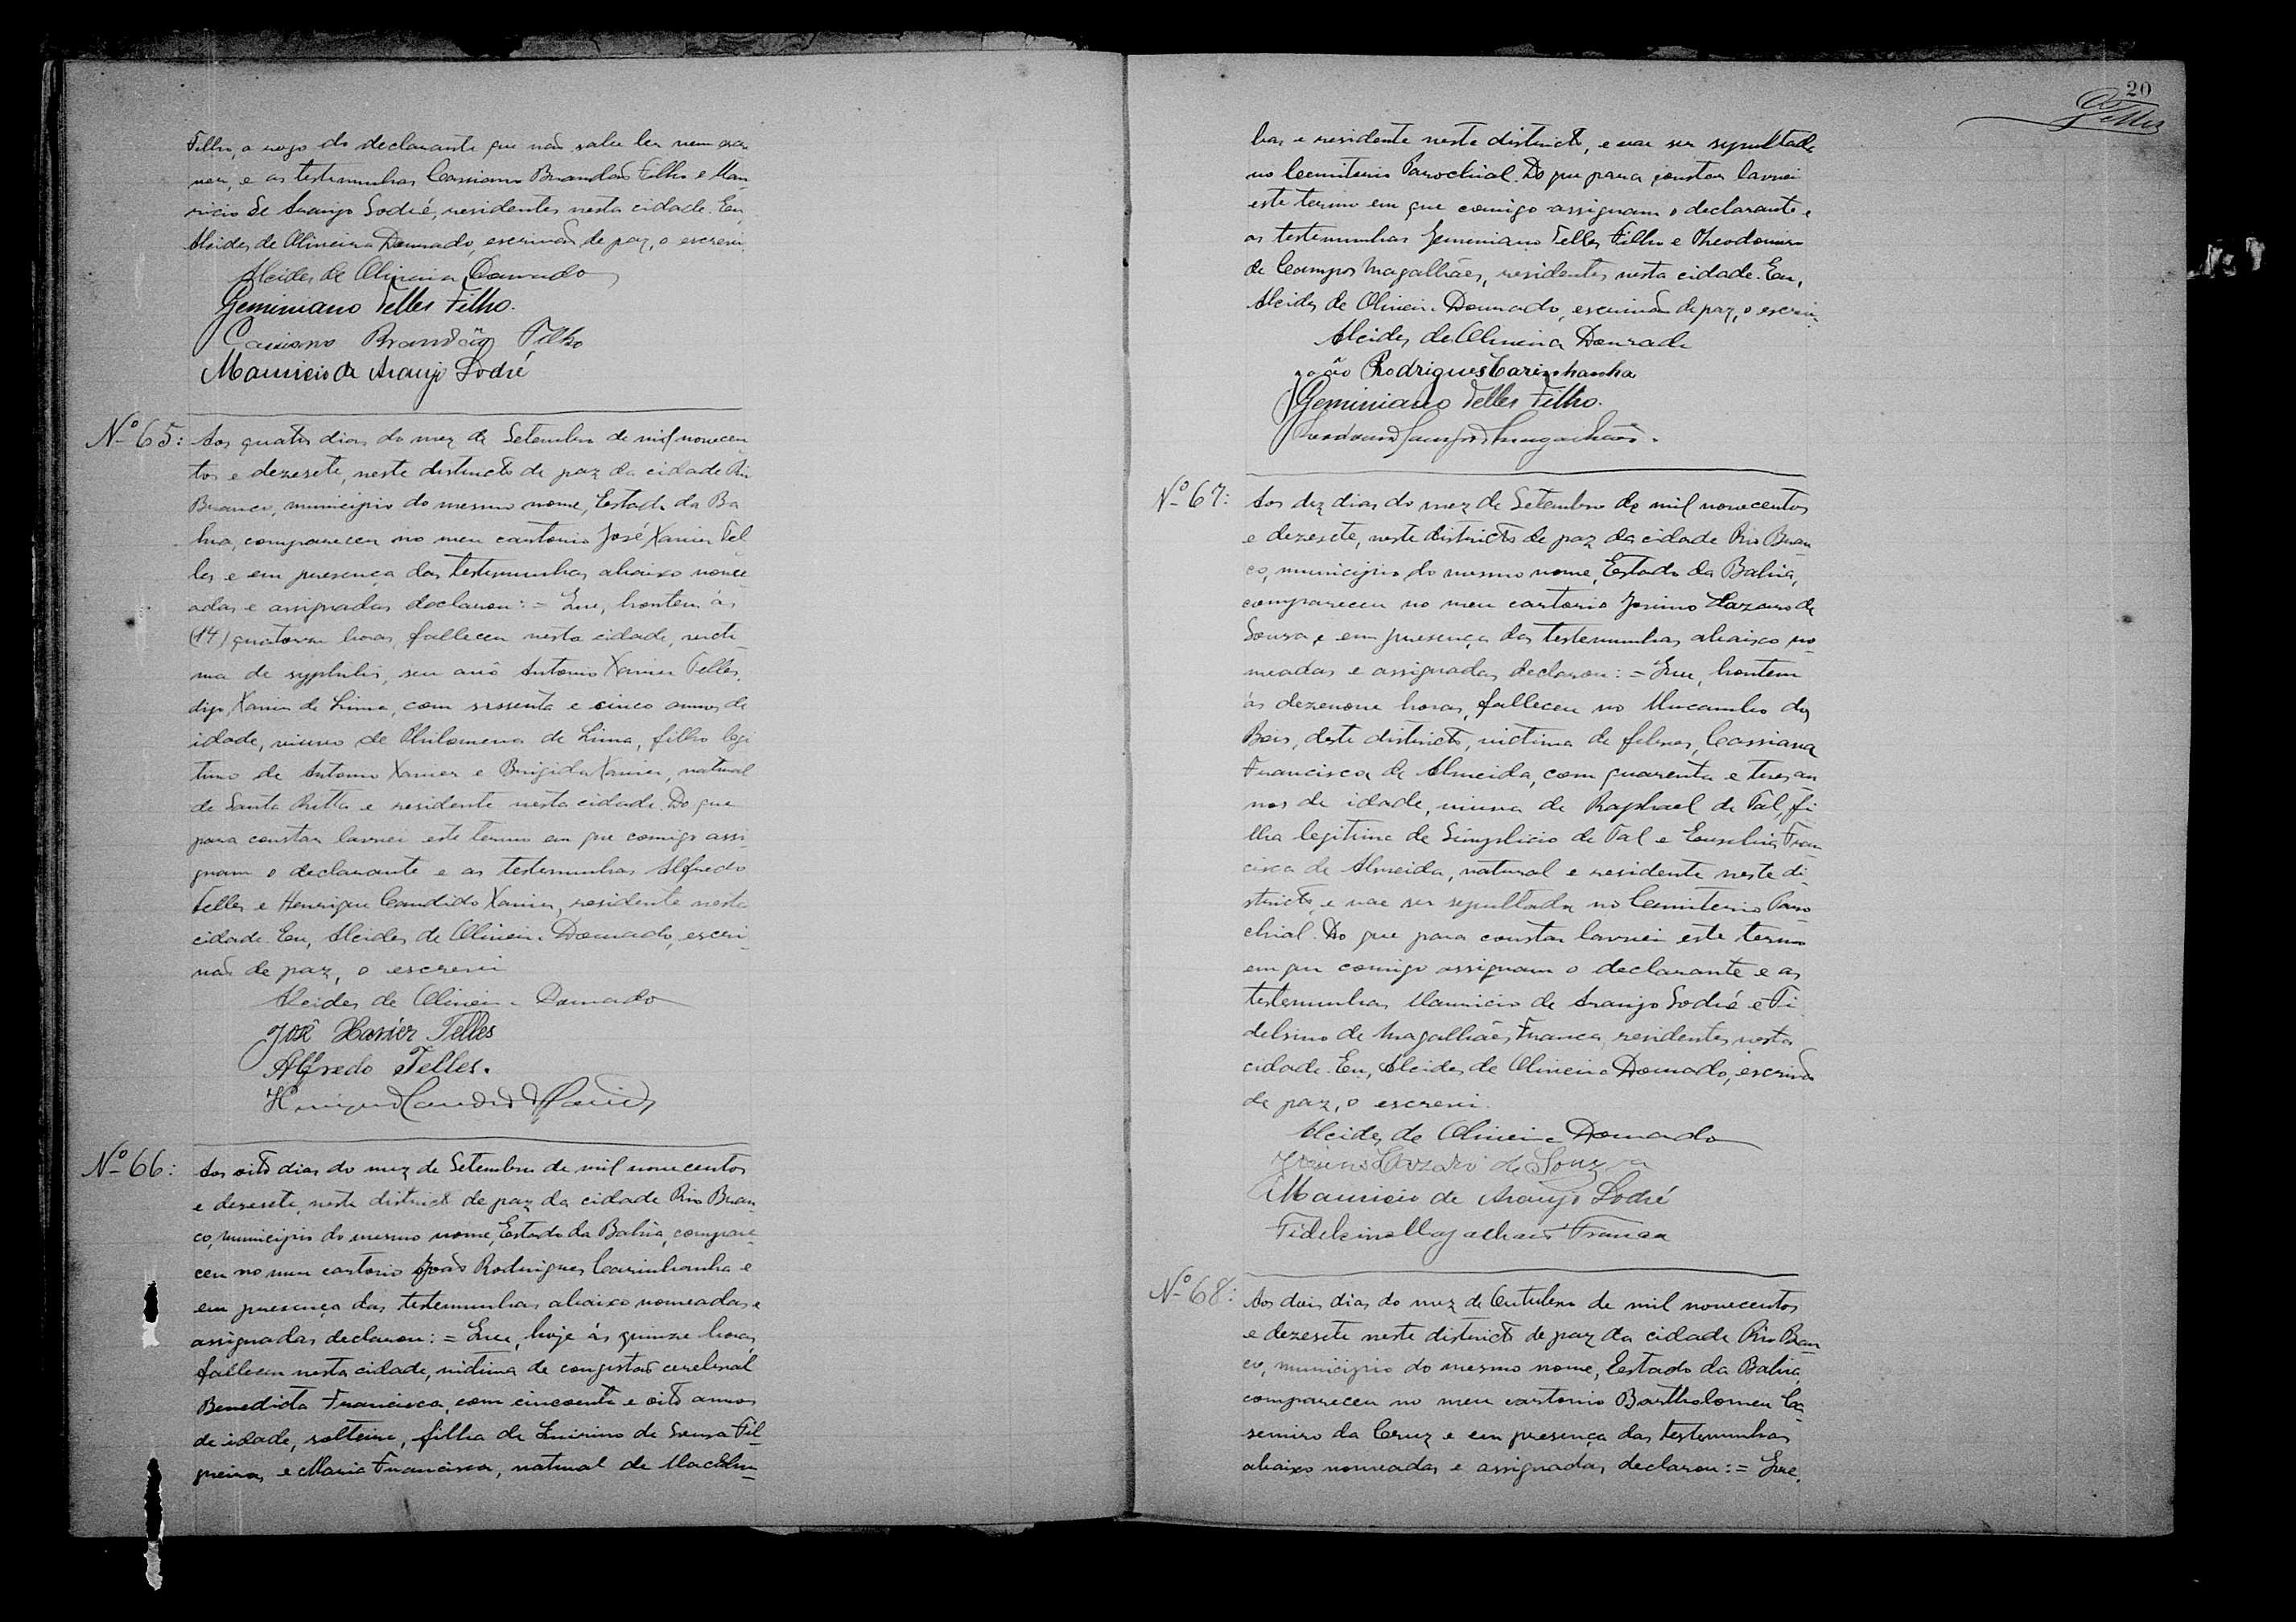 Filho, a rogo do declarante que não sabe ler nem escre
ver, e as testemunhas Cassiano Brandão Filho e Mau
ricio de Araujo Sodré, residentes nesta cidade. Eu,
Alcides de Oliveira Dourado, escrivão de paz, o escrevi.
Alcides de Oliveira Dourado
Geminiano Telles Filho.
Cassiano Brandão Filho
Mauricio de Araujo Sodré
Nº 65: Aos quatro dias do mez de Setembro de mil novecen
tos e dezesete, neste districto de paz da cidade Rio
Branco, municipio do mesmo nome, Estado da Ba
hia, compareceu no meu cartorio José Xavier Tel
les e em presença das testemunhas abaixo nome
adas e assignadas declarou: = Que, hontem ás
(14) quatorze horas, falleceu nesta cidade, victi
ma de syphilis, seu avô Antonio Xavier Telles,
digo, Xavier de Lima, com sessenta e cinco annos de
idade, viuvo de Philomena de Lima, filho legi
timo de Antonio Xavier e Brigida Xavier, natural
de Santa Ritta e residente nesta cidade. Do que
para constar lavrei este termo em que comigo assi-
gnam o declarante e as testemunhas Alfredo
Telles e Henrique Candido Xavier, residente nesta
cidade. Eu, Alcides de Oliveira Dourado, escri-
vão de paz, o escrevi
Alcides de Oliveira Dourado
José Xavier Telles
Alfredo Telles.
Henrique Candido Xavier
Nº 66: Aos oito dias do mez de Setembro de mil novecentos
e dezesete, neste districto de paz da cidade Rio Bran-
co, municipio do mesmo nome, Estado da Bahia, compare-
ceu no meu cartorio João Rodrigues Carinhanha e
em presença das testemunhas abaixo nomeadas e
assignadas declarou: = Que, hoje ás quinze horas,
falleceu nesta cidade, victima de congestão cerebral
Benedicta Francisca, com cincoenta e oito annos
de idade, solteira, filha de Quirino de Sousa Fil-
gueiras e Maria Francisca, natural de Macahu-
20
Telles
bas e residente neste districto, e vae ser sepultada
no Cemiterio Parochial. Do que para constar lavrei
este termo em que comigo assignam o declarante e
as testemunhas Geminiano Telles Filho e Theodomiro
de Campos Magalhães, residentes nesta cidade. Eu,
Alcides de Oliveira Dourado, escrivão de paz, o escrevi.
Alcides de Oliveira Dourado
João Rodrigues Carinhanha
Geminiano Telles Filho.
Theodomiro Campos Magalhães.
Nº 67: Aos dez dias do mez de Setembro de mil novecentos
e dezesete, neste districto de paz da cidade Rio Bran-
co, municipio do mesmo nome, Estado da Bahia,
compareceu no meu cartorio Lazaro de
Sousa e em presença das testemunhas abaixo no-
meadas e assignadas declarou: = Que, hontem
ás dezenove horas, falleceu no Mucambo dos
Bois, deste districto, victima de febres, Cassiana
Francisca de Almeida, com quarenta e tres an
nos de idade, viuva de Raphael de Tal, fi
lha legitima de Simplicio de Tal e Eusebia Fran
cisca de Almeida, natural e residente neste di-
stricto, e vae ser sepultada no Cemiterio Paro-
chial. Do que para constar lavrei este termo
em que comigo assignam o declarante e as
testemunhas Mauricio de Araujo Sodré e Fi
delsino de Magalhães Franca, residentes nesta
cidade. Eu, Alcides de Oliveira Dourado, escrivão
de paz, o escrevi.
Alcides de Oliveira Dourado
Lazaro de Souza
Mauricio de Araujo Sodré
Fidelsino Magalhães Franca
Nº 68: Aos dois dias do mez de Outubro de mil novecentos
e dezesete neste districto de paz da cidade Rio Bran
co, municipio do mesmo nome, Estado da Bahia,
compareceu no meu cartorio Bartholomeu Ca-
semiro da Cruz e em presença das testemunhas
abaixo nomeadas e assignadas, declarou: = Que,